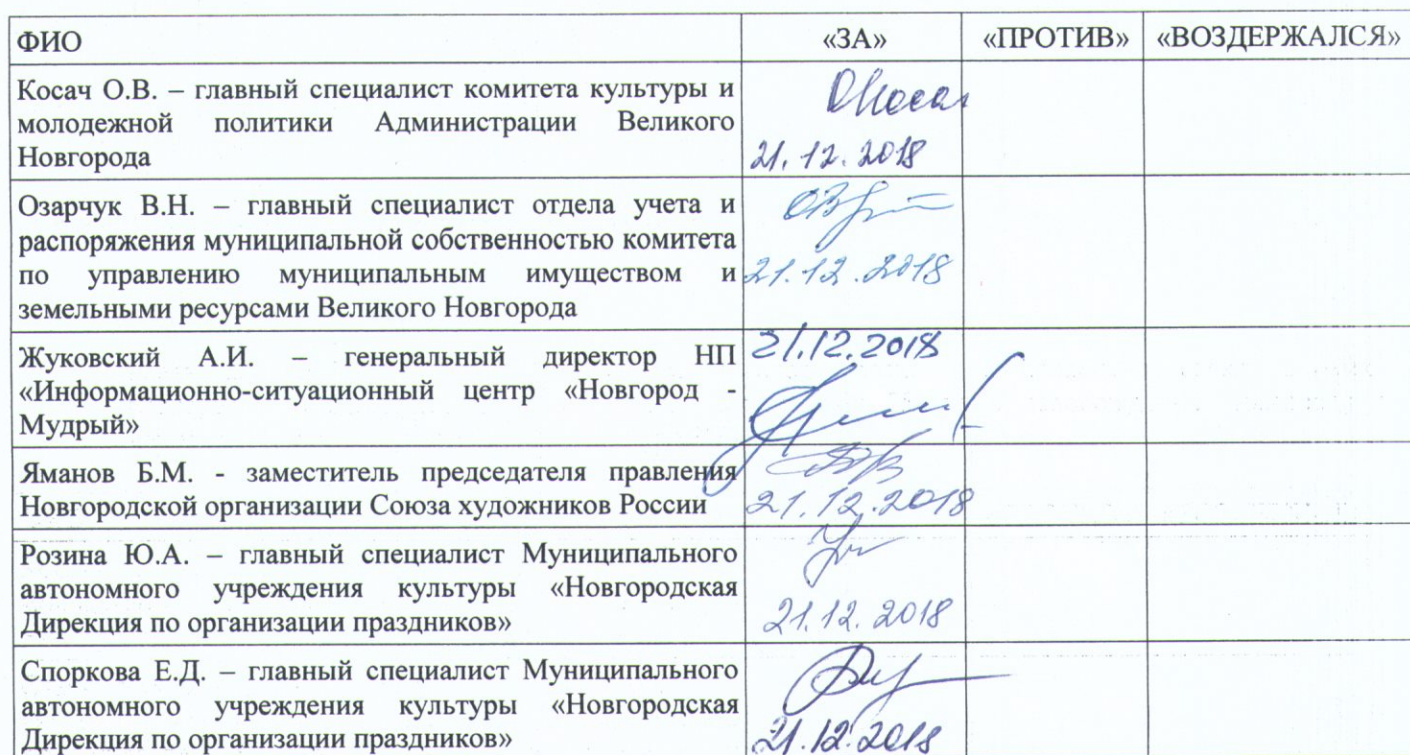 ФИО «ЗА» «ПРОТИВ» «ВОЗДЕРЖАЛСЯ»
Косач О.В. – главный специалист комитета культуры и
молодежной политики Администрации Великого
Новгорода
ОКосач
21.12.2018
Озарчук В.Н. – главный специалист отдела учета и
распоряжения муниципальной собственностью комитета
по управлению муниципальным имуществом и
земельными ресурсами Великого Новгорода
21.12.2018
Жуковский А.И. – генеральный директор НП
«Информационно-ситуационный центр «Новгород -
Мудрый»
21.12.2018
Яманов Б.М. - заместитель председателя правления
Новгородской организации Союза художников России
21.12.2018
Розина Ю.А. – главный специалист Муниципального
автономного учреждения культуры «Новгородская
Дирекция по организации праздников»
21.12.2018
Споркова Е.Д. – главный специалист Муниципального
автономного учреждения культуры «Новгородская
Дирекция по организации праздников»
21.12.2018